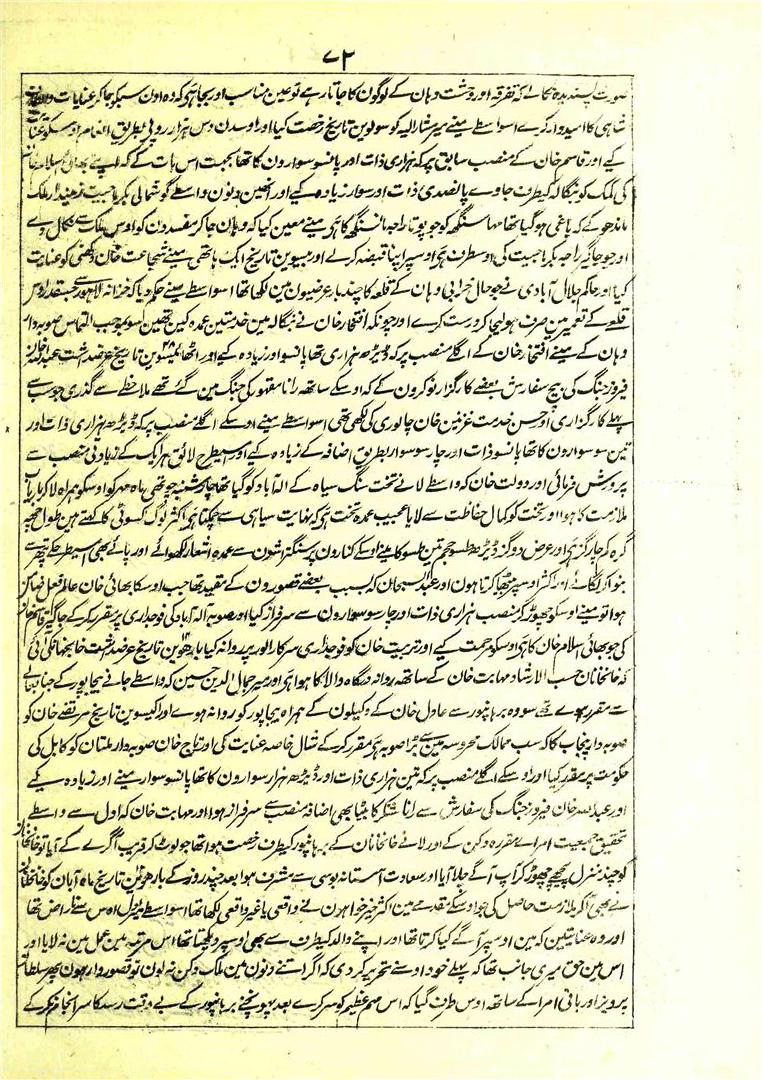 ۷۲
صورت پسندیدہ بجا لائے کہ تفرقہ اور وحشت وہان کے لوگون کا جاتا رہے تو عین مناسب اور بجا ہی کہ وہ اون سبکو جا کر عنایات
شاہی کا امیدوار کرے اسواسطے مینے میر مشار الیہ کو سولوین تاریخ رخصت کیا اور اوسدن دس ہزار روپی بطریق انعام اوسکو عنایت
کیے اور قاسم خان کے منصب سابق پر کہ ہزاری ذات اور پانسو سوارون کا تھا بجہت اس بات کے کہ اپنے بھائی اسلام خان
کی کمک کو بنگالہ کیطرف جاوے پانصدی ذات اور سوار زیادہ کیے اور انھین دنون واسطے گوشمالی بکرماجیت زمیندار ملک
ماندھو کے کہ باغی ہو گیا تھا مہا سنگھ کو جو پوتا راجہ مانسنگھ کا ہی مینے معین کیا کہ وہان جا کر مفسدون کو اوس ملک سے نکال دے
اور جو جاگیر راجہ بکرماجیت کی اوسطرف ہی اوسپر اپنا قبضہ کر لے اور بیسوین تاریخ ایک ہاتھی مینے شجاعت خان دکھنی کو عنایت
کیا اور حاکم جلال آبادی نے جو حال خرابی وہان کے قلعہ کا چند بار عرضیون مین لکھا تھا اسواسطے مینے حکم دیا کہ خزانہ لاہور سے جسقدر اوس
قلعہ کے تعمیر مین صرف ہو لیجا کر درست کرے اور چونکہ افتخار خان نے بنگالہ مین خدمتین عمدہ کین تھین اسو بموجب التماس صوبہ دار
وہان کے مینے افتخار خان کے اگلے منصب پر کہ ڈیڑھ ہزاری تھا پانسو اور زیادہ کیے اور اٹھائیسوین ۲۸ تاریخ عرضداشت عبداللہ خان
فیروز جنگ کی بیچ سفارش بعضے کارگزار نوکرون کے کہ اوسکے ساتھ رانا مقہور کی جنگ مین گئے تھے ملاحظے سے گذری جو سب سے
پہلے کارگزاری اور حسن خدمت غزنین خان جالوری کی لکھی تھی اسواسطے مینے اوسکے اگلے منصب پر کہ ڈیڑھ ہزاری ذات اور
تین سو سوارون کا تھا پانسو ذات اور چار سو سوار بطریق اضافہ کے زیادہ کیے اور اسیطرح لائق ہر ایک کے زیادتی منصب سے
پرورش فرمائی اور دولت خان کہ واسطے لانے تخت سنگ سیاہ کے الہ آباد کو گیا تھا چار شنبہ چوتھی ماہ مہر کو اوسکو ہمراہ لا کر باریاب
ملازمت کا ہوا اور تخت کو کمال حفاظت سے لایا عجیب عمدہ تخت ہی کہ نہایت سیاہی سے چمکتا ہی اکثر لوگ کسوٹی کا کہتے ہین طول مین چھ
گرہ کم چار گز ہی اور عرض دو گز ڈیڑھ طسو حجم تین طسو کا مینے اوسکے کنارون پر سنگتراشون سے عمدہ اشعار لکھوائے اور پائے بھی اسیطرحکے پتھر سے
بنوا کر لگائے اور اکثر اوسپر بیٹھا کرتا ہون اور عبدالسبحان کہ بسبب بعضے قصورون کے مقید تھا جب اوسکا بھائی خان عالم فعل ضامن
ہوا تو مینے اوسکو چھوڑ کر منصب ہزاری ذات اور چار سو سوارون سے سرفراز کیا اور صوبہ الہ آباد کی فوجداری پر مقرر کر کے جاگیر قاسم خان
کی جو بھائی اسلام خان کا ہی اوسکو مرحمت کیے اور تربیت خان کو فوجداری سرکار الور پر روانہ کیا بارھوین ۱۲ تاریخ عرضداشت خانجہان کی آئی
کہ خانخانان حسب الارشاد مہابت خان کے ساتھ روانہ درگاہ والا کا ہوا ہی اور میر جمال الدین حسین کہ واسطے جانے بیجاپور کے جناب عالی
سے مقرر ہوے تھے سو وہ برہانپور سے عادل خان کے وکیلون کے ہمراہ بیجاپور کو روانہ ہوے اور اکیسوین تاریخ مرتضے خان کو
صوبہ دار پنجاب کا کہ سب ممالک محروسہ مین سے بڑا صوبہ ہی مقرر کر کے شال خاصہ عنایت کی اور تاج خان صوبہ دار ملتان کو کابل کی
حکومت پر مقرر کیا اور اوسکے اگلے منصب پر کہ تین ہزاری ذات اور ڈیڑھ ہزار سوارون کا تھا پانسو سوار مینے اور زیادہ کیے
اور عبداللہ خان فیروز جنگ کی سفارش سے رانا شنکر کا بیٹا بھی اضافہ منصب سے سرفراز ہوا اور مہابت خان کہ اول سے واسطے
تحقیق جمعیت امراے مقررہ دکن کے اور لانے خانخانان کے برہانپور کیطرف رخصت ہوا تھا جو لوٹ کر قریب آگرے کے آیا تو خانخانان
کو چند منزل پیچھے چھوڑ کر آپ آگے چلا آیا اور سعادت آستانہ بوسی سے مشرف ہوا بعد چند روز کے بارھوین تاریخ ماہ آبان کو خانخانان
نے بھی آ کر ملازمت حاصل کی جو اوسکے مقدمے مین اکثر خیر خواہون نے واقعی یا غیر واقعی لکھا تھا اسواسطے میرا دل اوس سے ناراض تھا
اور وہ عنایتین کہ مین اوسپر آگے کیا کرتا تھا اور اپنے والد کیطرف سے بھی اوسپر دیکھتا تھا اس مرتبہ مین عمل مین نہ لایا اور
اس مین حق میری جانب تھا کہ پہلے خود اوسنے تحریر کر دی کہ اگر اتنے دنون مین ملک دکن نہ لون تو قصور وار ہون پھر سلطان
پرویز اور باقی امرا کے ساتھ اوس طرف گیا کہ اس مہم عظیم کو سر کرے بعد پہونچنے برہانپور کے بے وقت رسد کا سرانجام نکر کے